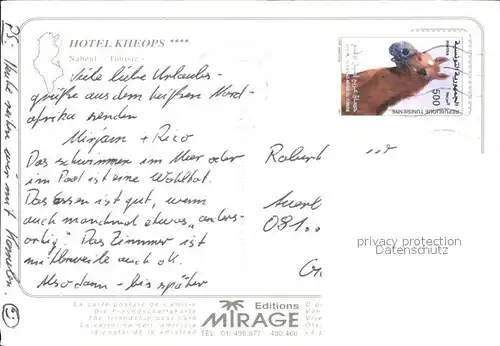 HOTEL KHEOPS ****
Nabeul Tunisie
Viele liebe Urlaubs-
grüße aus dem heißen Nord-
afrika senden
Mirjam + Rico
Das schwimmen im Meer oder
im Pool ist eine Wohltat.
Das Essen ist gut, wenn
auch manchmal etwas „anders-
artig". Das Zimmer ist
mittlerweile auch ok.
Also dann – bis später
PS: Heute reiten wir mit Kamelen.
الجمهورية التونسية
500
REPUBLIQUE TUNISIENNE
Robert
081..
privacy protection
Datenschutz
La carte postale de l'amitié
Die Freundschaftskarte
The friendship post card
La cartolina dell'amicizia
la postal de la amistad
Editions
MIRAGE
TEL. 01/496.977